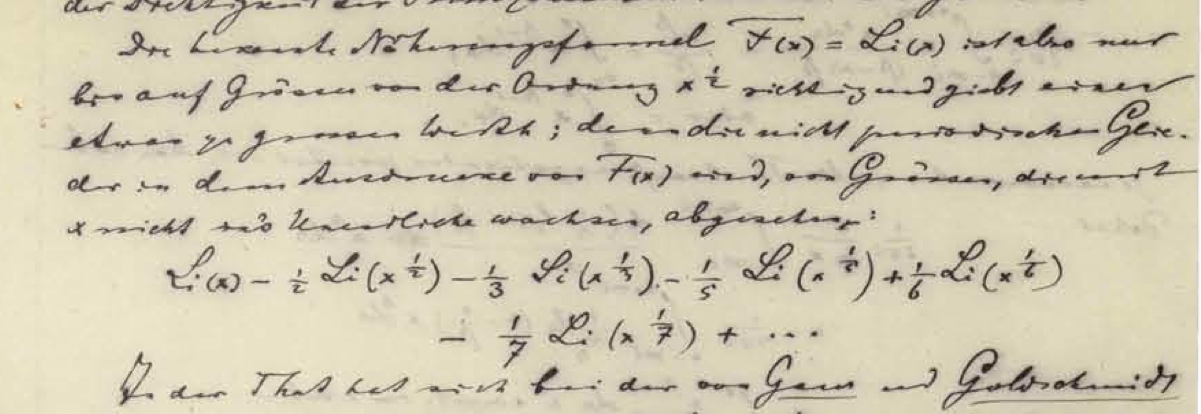 der Dichtigkeit der Primzahlen
Die bekannte Näherungsformel F(x) = Li(x) ist also nur
bis auf Grössen von der Ordnung x^{1/2} richtig und giebt einen
etwas zu grossen Werth; denn die nicht periodischen Glie-
der in dem Ausdrucke von F(x) sind, von Grössen, die mit
x nicht in's Unendliche wachsen, abgesehen:
Li(x) − 1/2 Li(x^{1/2}) − 1/3 Li(x^{1/3}) − 1/5 Li(x^{1/5}) + 1/6 Li(x^{1/6})
− 1/7 Li(x^{1/7}) + ...
In der That hat sich bei der von Gauss und Goldschmidt